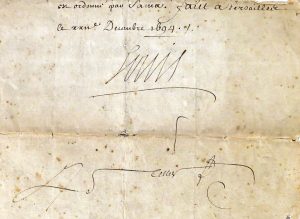 ou ordonné par Sa Ma.té fait a Versailles
le xxii.e Decembre 1694 ./.
Louis